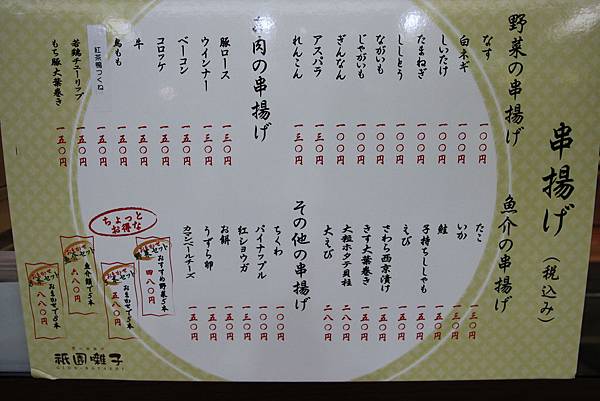 串揚げ(税込み)
野菜の串揚げ
なす 一〇〇円
白ネギ 一〇〇円
しいたけ 一〇〇円
たまねぎ 一〇〇円
ししとう 一〇〇円
ながいも 一〇〇円
じゃがいも 一〇〇円
ぎんなん 一〇〇円
アスパラ 一三〇円
れんこん 一三〇円
お肉の串揚げ
豚ロース 一三〇円
ウインナー 一三〇円
ベーコン 一五〇円
コロッケ 一五〇円
牛 一五〇円
鳥もも 一五〇円
紅茶鴨つくね 一五〇円
若鶏チューリップ 一五〇円
もち豚大葉巻き 一五〇円
魚介の串揚げ
たこ 一三〇円
いか 一三〇円
鮭 一五〇円
子持ちししゃも 一五〇円
えび 一五〇円
さわら西京漬け 一五〇円
きす大葉巻き 一五〇円
大粒ホタテ貝柱 二八〇円
大えび 二八〇円
その他の串揚げ
ちくわ 一〇〇円
パイナップル 一〇〇円
紅ショウガ 一三〇円
お餅 一五〇円
うずら卵 一五〇円
カマンベールチーズ 一五〇円
ちょっと
お得な
おまかせセット
おすすめ野菜5本
四八〇円
おまかせセット
おまかせで5本
五八〇円
おまかせセット
魚介類で5本
六八〇円
おまかせセット
おまかせ8本
八八〇円
祇園囃子
GION-BAYASHI